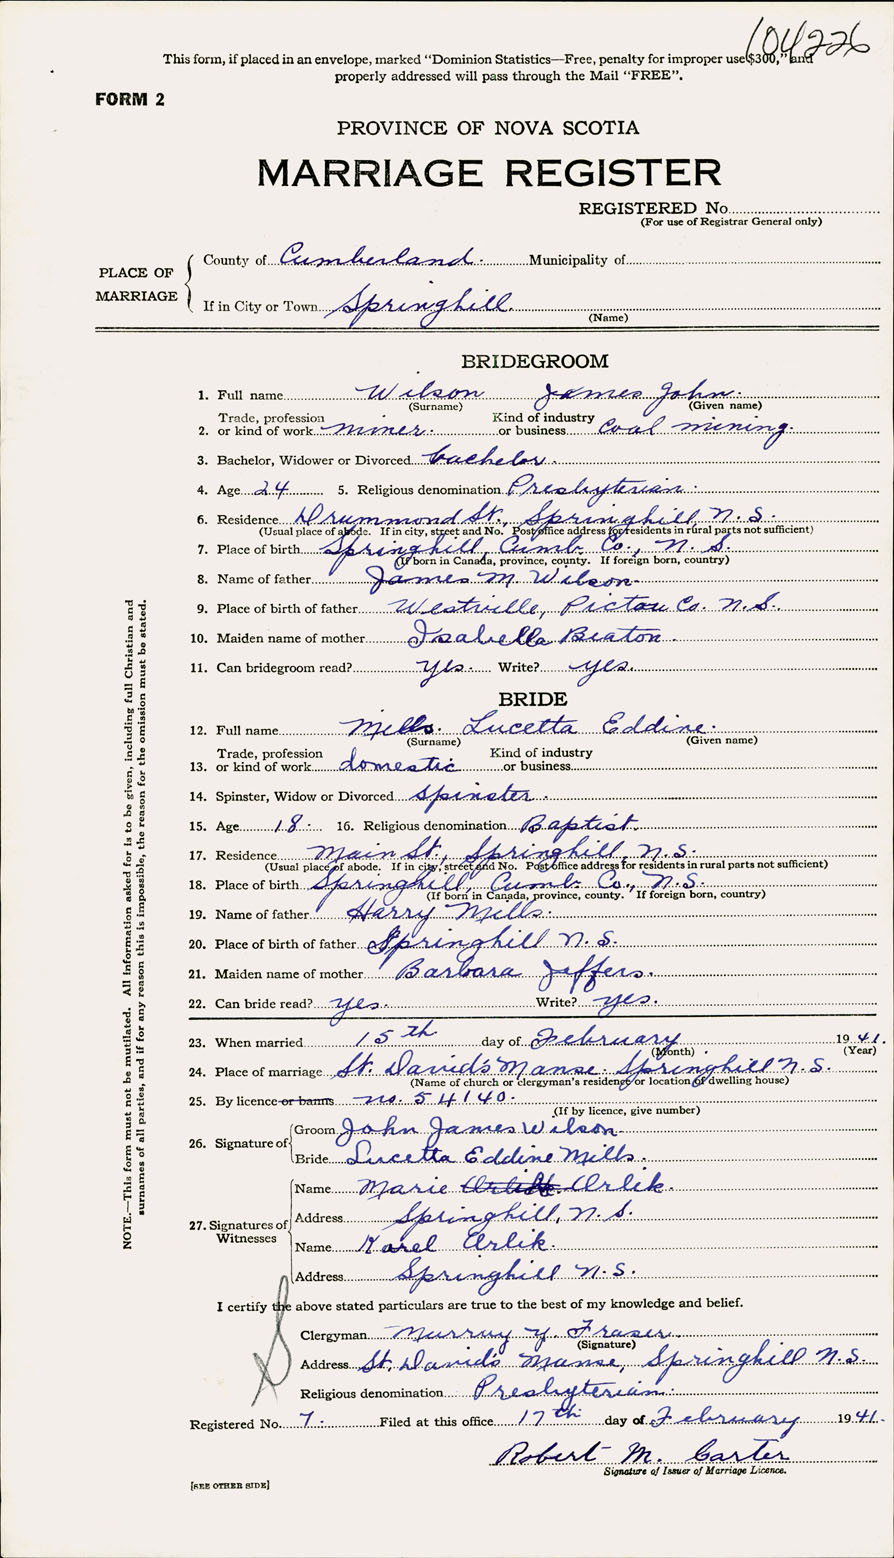 104226
This form, if placed in an envelope, marked "Dominion Statistics—Free, penalty for improper use $300," and
properly addressed will pass through the Mail "FREE".
FORM 2
PROVINCE OF NOVA SCOTIA
MARRIAGE REGISTER
REGISTERED No.
(For use of Registrar General only)
PLACE OF MARRIAGE
County of Cumberland. Municipality of
If in City or Town Springhill.
(Name)
BRIDEGROOM
1. Full name Wilson James John.
(Surname) (Given name)
Trade, profession Kind of industry
2. or kind of work miner. or business coal mining.
3. Bachelor, Widower or Divorced bachelor.
4. Age 24 5. Religious denomination Presbyterian.
6. Residence Drummond St., Springhill N.S.
(Usual place of abode. If in city, street and No. Post office address for residents in rural parts not sufficient)
7. Place of birth Springhill, Cumb. Co., N.S.
(If born in Canada, province, county. If foreign born, country)
8. Name of father James M. Wilson.
9. Place of birth of father Westville, Pictou Co. N.S.
10. Maiden name of mother Isabella Beaton.
11. Can bridegroom read? yes. Write? yes.
BRIDE
12. Full name Mills. Lucetta Eddine.
(Surname) (Given name)
Trade, profession Kind of industry
13. or kind of work domestic or business
14. Spinster, Widow or Divorced spinster.
15. Age 18. 16. Religious denomination Baptist.
17. Residence Main St., Springhill, N.S.
(Usual place of abode. If in city, street and No. Post office address for residents in rural parts not sufficient)
18. Place of birth Springhill, Cumb. Co., N.S.
(If born in Canada, province, county. If foreign born, country)
19. Name of father Harry Mills.
20. Place of birth of father Springhill N.S.
21. Maiden name of mother Barbara Jeffers.
22. Can bride read? yes. Write? yes.
23. When married 15th day of February 1941.
(Month) (Year)
24. Place of marriage St. David's Manse. Springhill N.S.
(Name of church or clergyman's residence or location of dwelling house)
25. By licence or banns no. 54140.
(If by licence, give number)
26. Signature of
Groom John James Wilson.
Bride Lucetta Eddine Mills.
27. Signatures of Witnesses
Name Marie Orlik.
Address Springhill, N.S.
Name Karel Orlik.
Address Springhill N.S.
I certify the above stated particulars are true to the best of my knowledge and belief.
Clergyman Murray Y. Fraser.
(Signature)
Address St. David's Manse, Springhill N.S.
Religious denomination Presbyterian.
Registered No. 7. Filed at this office 17th day of February 1941.
Robert M. Carter
Signature of Issuer of Marriage Licence.
[SEE OTHER SIDE]
NOTE.—This form must not be mutilated. All information asked for is to be given, including full Christian and
surnames of all parties, and if for any reason this is impossible, the reason for the omission must be stated.